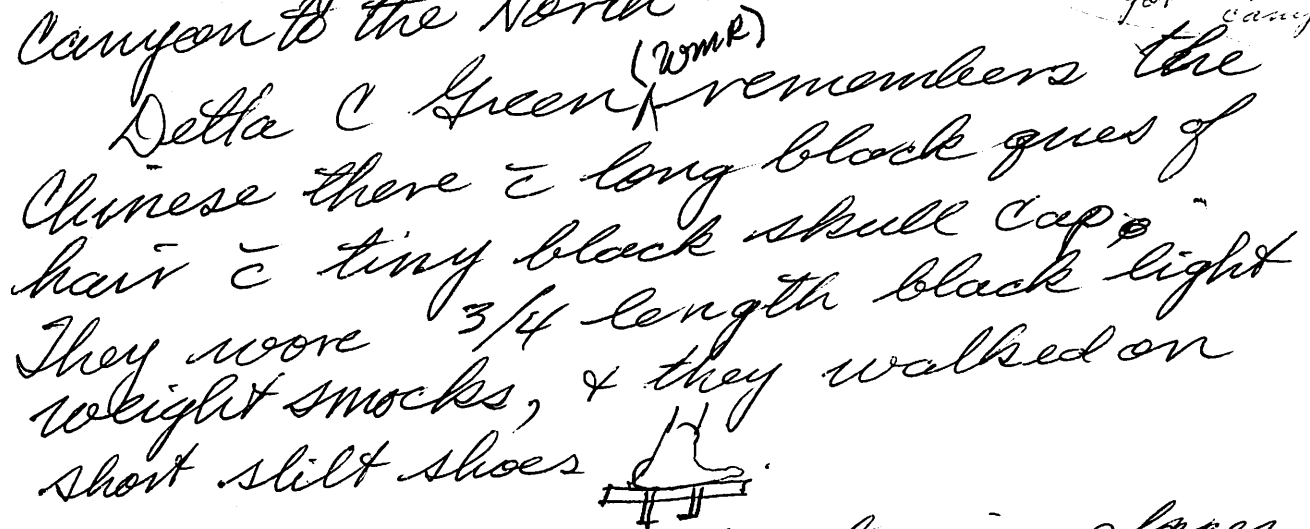 for
cany
Canyon to the North
(WMR)
Detta C Green ^ remembers the
Chinese there c̄ long black ques of
hair c̄ tiny black skull cap.
They wore 3/4 length black light
weight smocks, & they walked on
short stilt shoes .